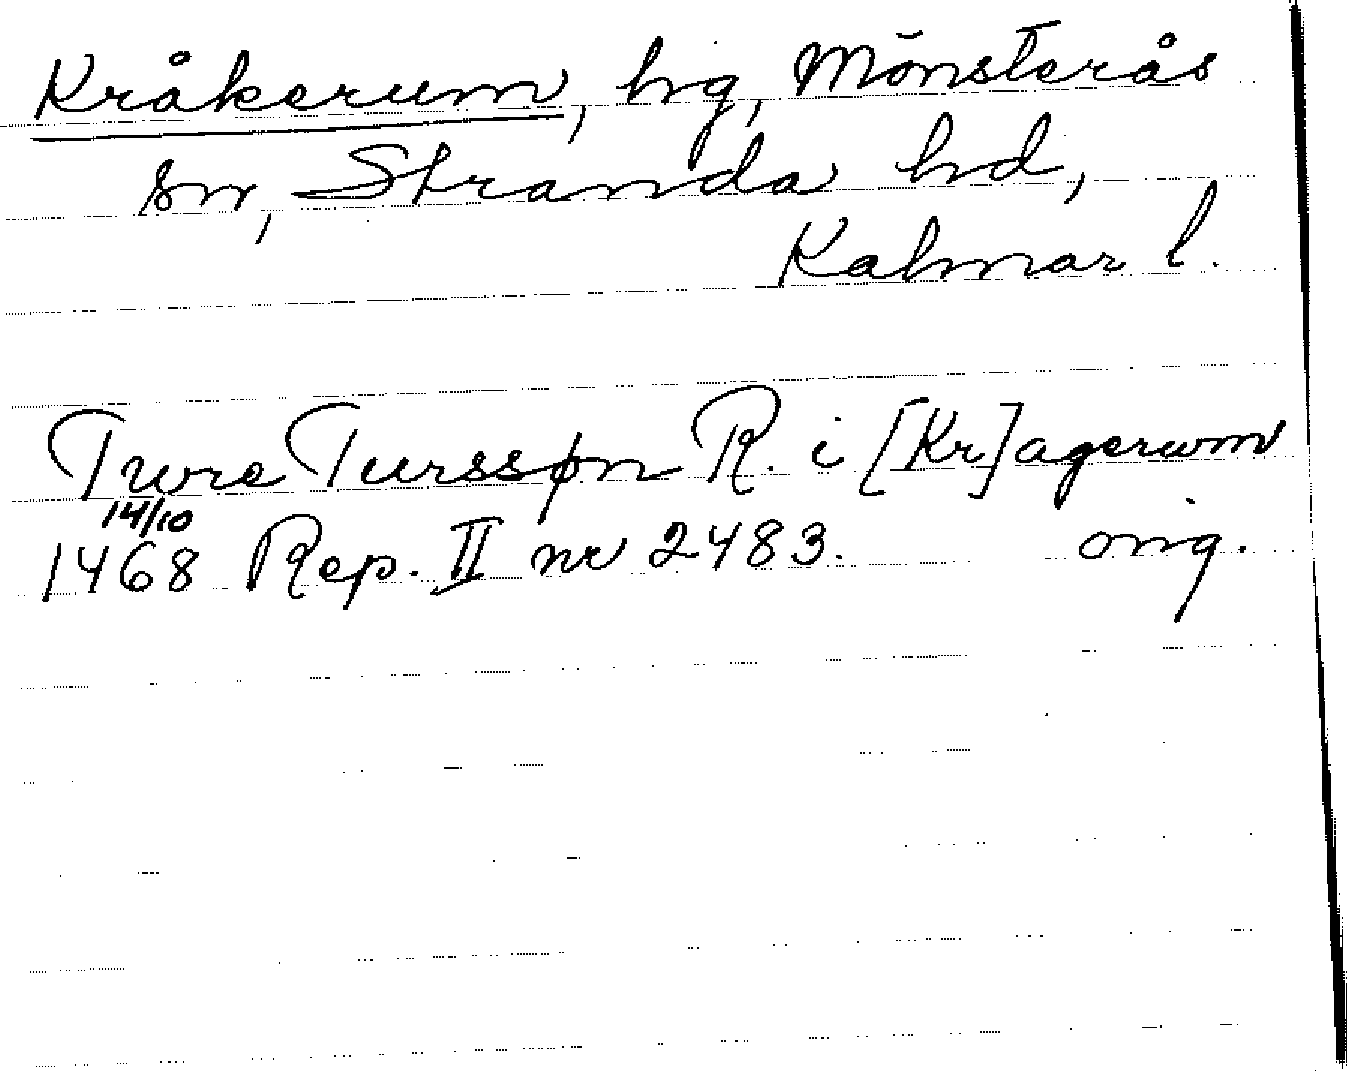 Kråkerum, hg, Mönsterås
sn, Stranda hd,
Kalmar l.
Twre Turssøn R. i [Kr]agerwm
14/10
1468 Rep. II nr 2483. orig.